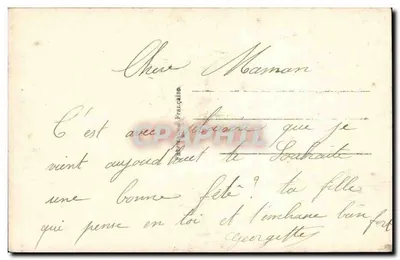 Chère Maman
C'est avec que je
vient aujourd'huit te Souhaite
une bonne fête? ta fille
qui pense en toi et t'embrase bien fort
Georgette
Française